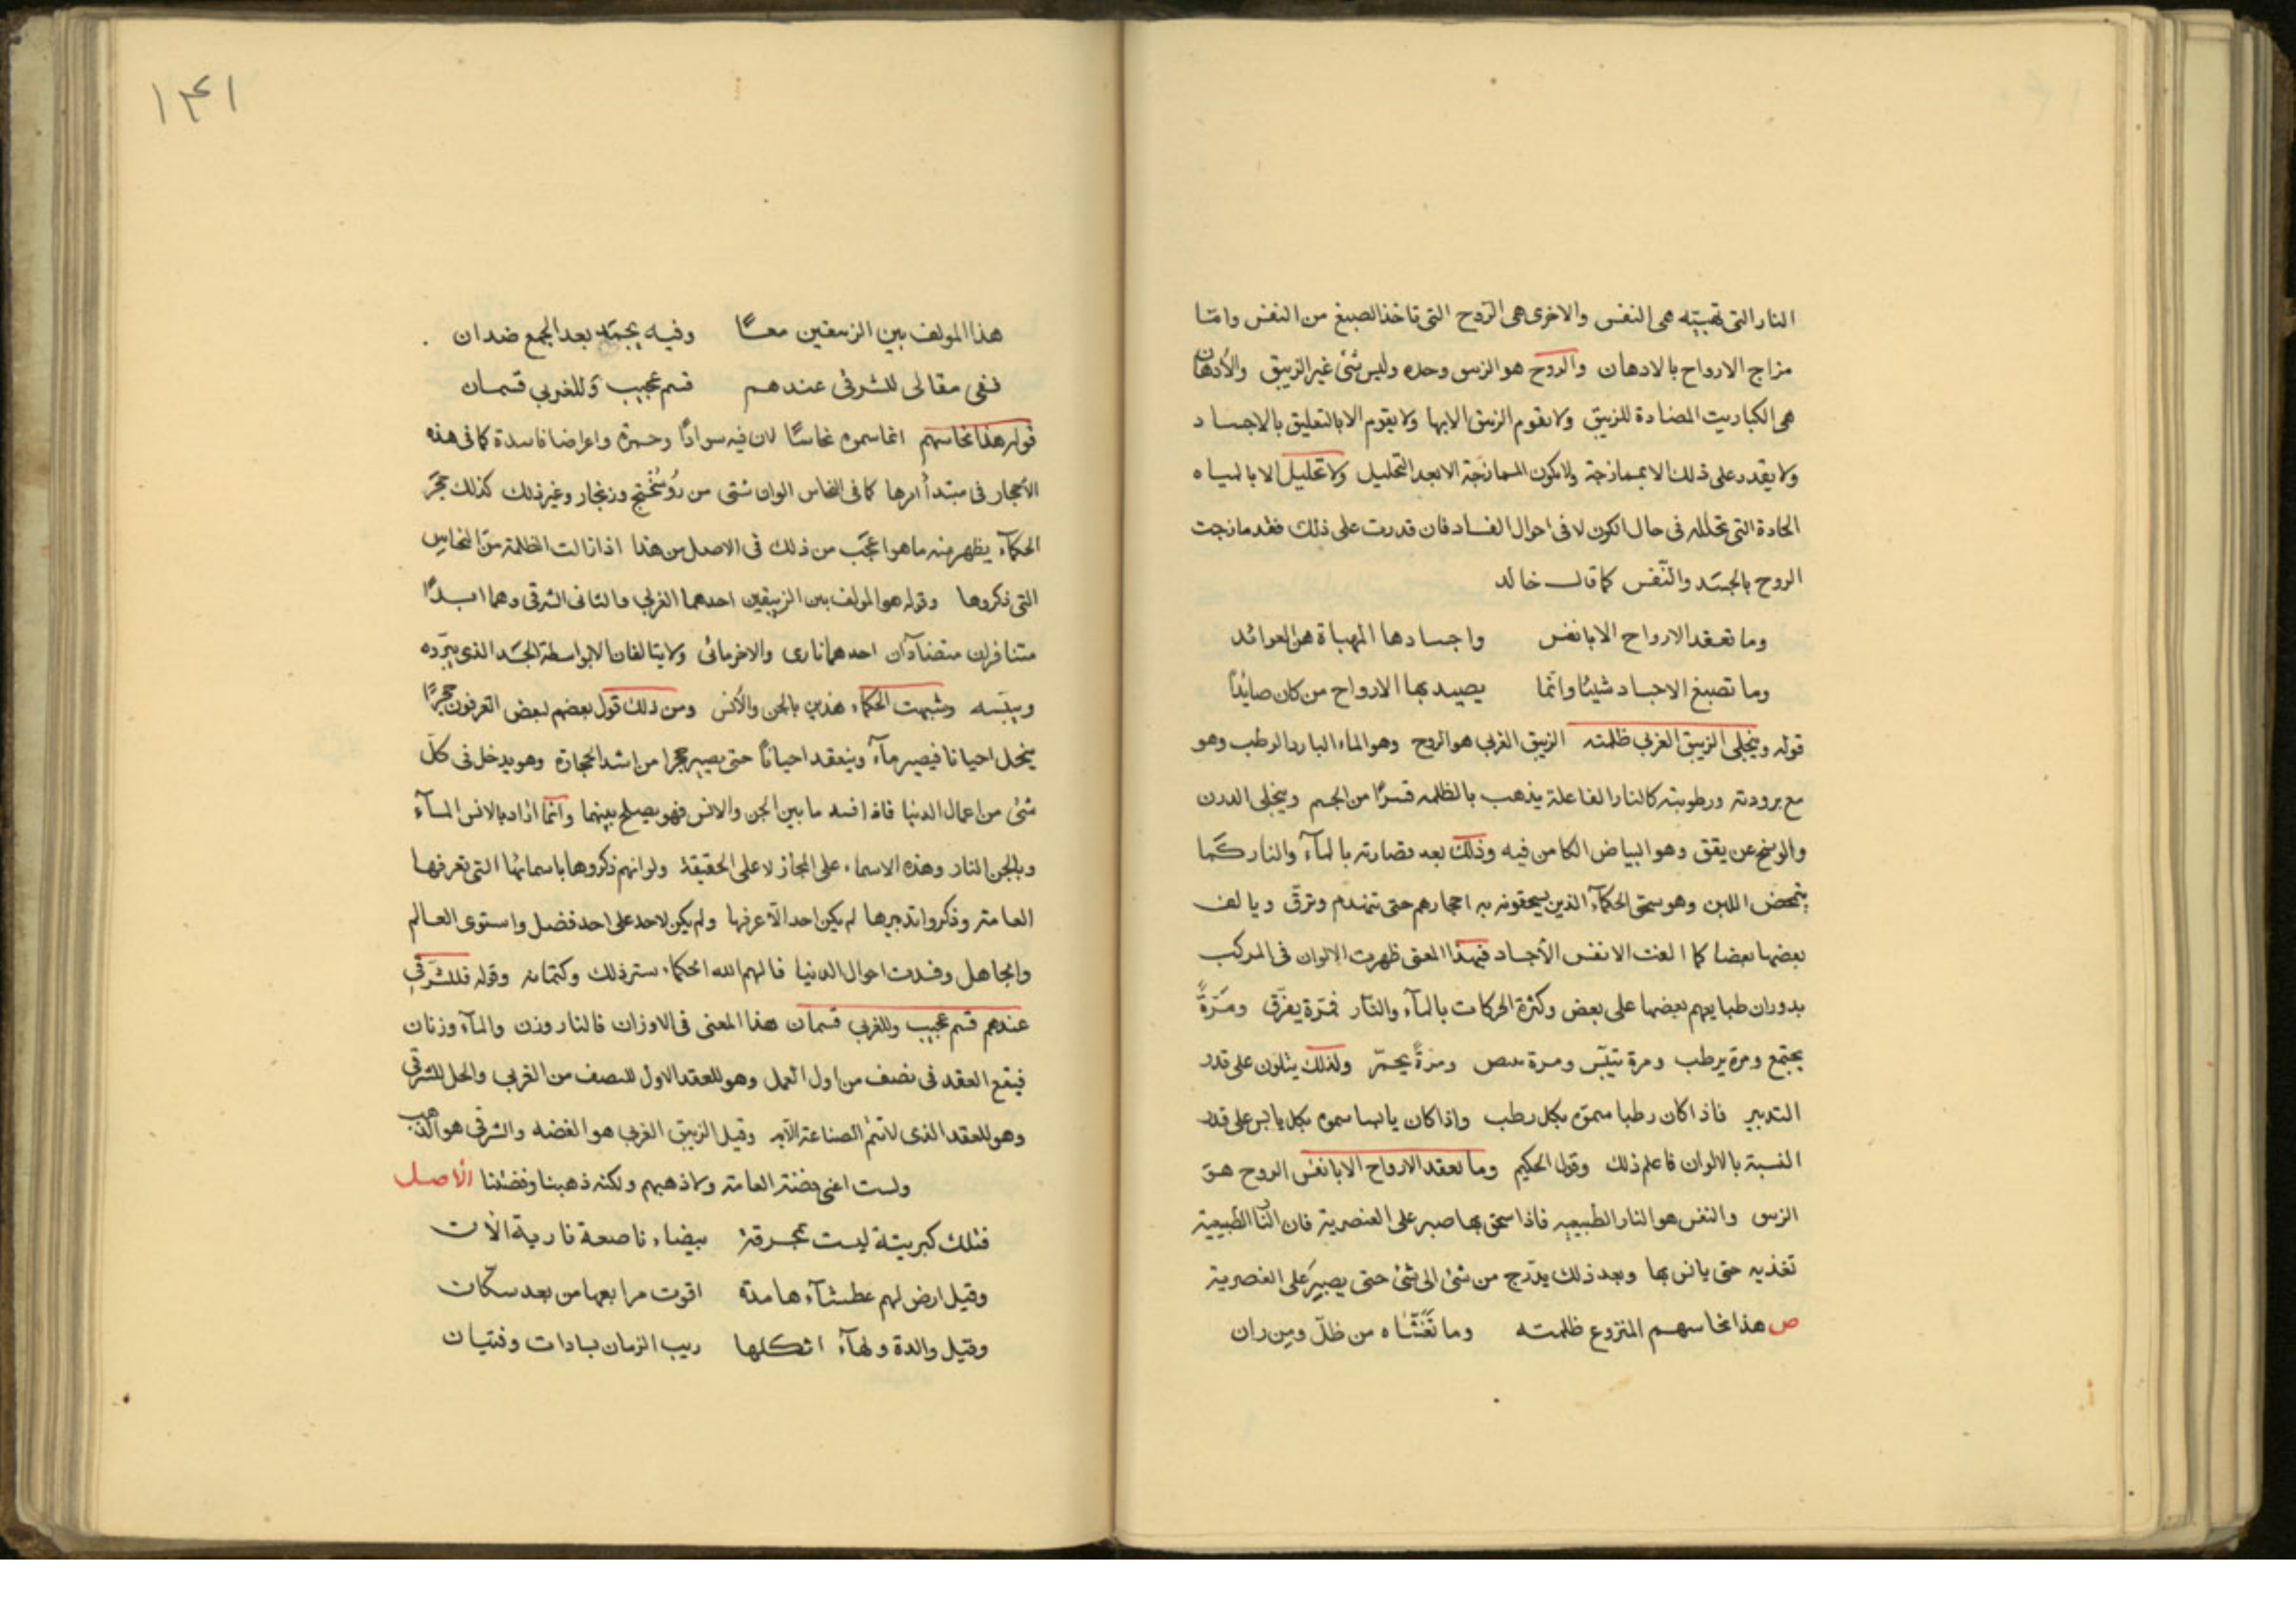 النار التى تهيئه هى النفس والاخرى هى الروح التى تاخذ الصبغ من النفس وامّا
مزاج الارواح بالادهان والروح هو الزيبق وحده وليس شئ غير الزيبق والأدهان
هى الكباريت المضادة للزيبق ولا يقوم الزيبق الا بها ولا يقوم الا بالتعليق بالاجساد
ولا يقدر على ذلك الا بممازجة ولا يكون الممازجة الا بعد التحليل ولا تحليل الا بالمياه
الحادة التى تحلله فى حال الكون لا فى احوال الفساد فان قدرت على ذلك فقد مازجت
الروح بالجسَد والنّفس كما قال خالد
وما تعقد الارواح الا بانفس واجسادها المهباة هنّ العوائد
وما تصبغ الاجساد شيئا وانّما يصيد بها الارواح من كان صايدًا
قوله وينجلى الزيبق الغربى ظلمته الزيبق الغربى هو الروح وهو الماء البارد الرطب وهو
مع برودته ورطوبته كالنار الفاعلة يذهب بالظلمه قسرًا من الجسم وينجلى الدرن
والوسخ عن يقق وهو البياض الكامن فيه وذلك بعد قصارته بالمآء والنار كما
يتمحض اللبن وهو سحق الحكمآء الذين يسحقونه به احجارهم حتى تتهدم وترقّ ويالف
بعضها بعضا كما الفت الانفس الأجساد فبهذا المعنى ظهرت الالوان فى المركب
بدوران طبايعهم بعضها على بعض وكثرة الحركات بالمآء والنّار فمّرة يفرّق ومَرّةً
يجتمع ومرة يرطب ومرة تيبّس ومرة يبيض ومرةً يحمرّ ولذلك يتلون على قدر
التدبير فاذا كان رطبا سموّه بكل رطب واذا كان يابسا سموه بكل يابس على قدر
النسبة بالالوان فاعلم ذلك وقول الحكيم وما تعقد الارواح الا بانفس الروح هو
الزيبق والنفس هو النار الطبيعيه فاذا سحق بها صبر على العنصرية فان النّار الطبيعية
تغذيه حتى يانس بها وبعد ذلك يدّرج من شئ الى شئ حتى يصبرَ على العنصرية
ص هذا نحاسهم المنزوع ظلمته وما تَغَشّاه من ظلّ ومِن ران
١٣١
هذا المولف بين الزيبقين معًا وفيه يجمّد بعد الجمع ضدان
ففى مقالى للشرقى عندهم قسم عجيب وَللغربي قسمان
قوله هذا نحاسهم انما سموه نحاسًا لان فيه سوادًا وحمرة واعراضا فاسدة كما فى هذه
الأحجار فى مبتدأ امرها كما فى النحاس الوان شتى من رُوسُخْتج وزنجار وغير ذلك كذلك حجَر
الحكمآء يظهر منه ما هو اعجَب من ذلك فى الاصل من هذا اذا زالت الظلمة من النحاس
التى ذكروها وقوله هو المولف بين الزيبقين احدهما الغربي والثانى الشرقى وهما ابدًا
متنافران متضآدّان احدهما نارى والاخر مائى ولا يتالفان الا بواسطة الجسَد الذى يبرّده
وييبّسه وشبهت الحكماء هذين بالجن والأنس ومن ذلك قول بعضهم لبعض اتعرفون حجرًا
ينحل احيانا فيصير مآء وينعقد احيانًا حتى يصير حجرا من اشد الحجارة وهو يدخل فى كلّ
شئ من اعمال الدنيا فاذا افسد ما بين الجن والانس فهو يصلح بينهما وانّما اراد بالانس المآء
وبالجن النار وهذه الاسماء على المجاز لا على الحقيقة ولو انهم ذكروها باسمائها التى تعرفها
العامة وذكروا تدبيرها لم يكن احد الاّ عرفها ولم يكن لاحد على احد فضل واستوى العالم
والجاهل وفسدت احوال الدنيا فالهم الله الحكماء ستر ذلك وكتمانه وقوله فللشرّقي
عندهم قسم عجيب وللغربي قسمان هذا المعنى فى الاوزان فالنار وزن والمآء وزنان
فيقع العقد فى نصف من اول العمل وهو للعقد الاول للنصف من الغربي والحل للشرقي
وهو للعقد الذى لا تتم الصناعة الا به وقيل الزيبق الغربى هو الفضه والشرقي هو الذّهب
ولست اعنى فضتة العامة ولا ذهبهم ولكنه ذهبنا وفضتنا الأصل
فتلك كبريتة ليست بمحرقة بيضاء ناصعة نارية الآت
وقيل ارض لهم عطشآء هامدة اقوت مرابعها من بعد سكّات
وقيل والدة ولهآء اثكلها ريب الزمان بسادات وفتيان